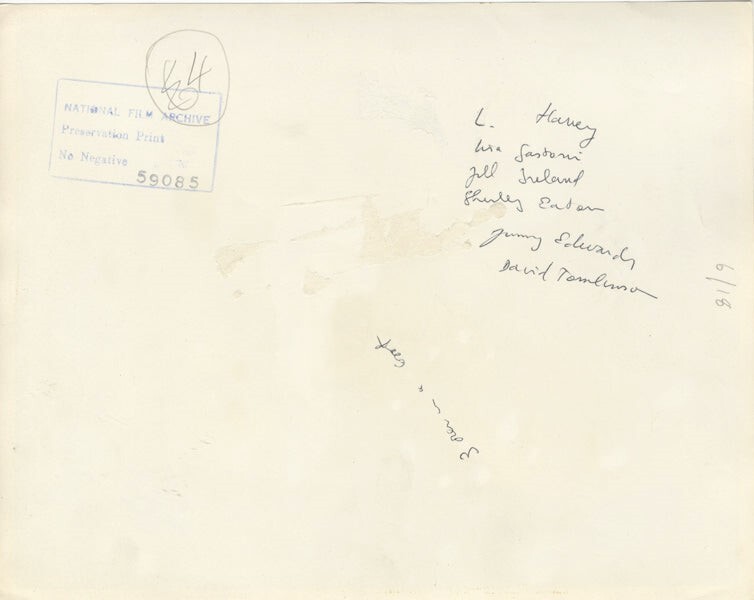 84
NATIONAL FILM ARCHIVE
Preservation Print
No Negative
59085
L. Harvey
Lisa Gastoni
Jill Ireland
Shirley Eaton
Jimmy Edwards
David Tomlinson
6/18